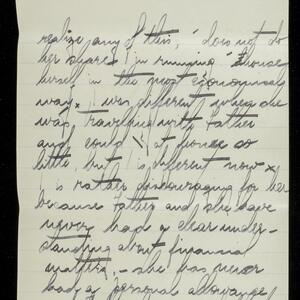 realize any of this, does not do
her share in running house
herself in the most economical
way. I was different when she
was traveling with father
and could at home so
little, but is different now x
I is rather discouraging for her
because father and she have
never had a clear under-
standing about financial
matters, - she has never
had a personal allowance